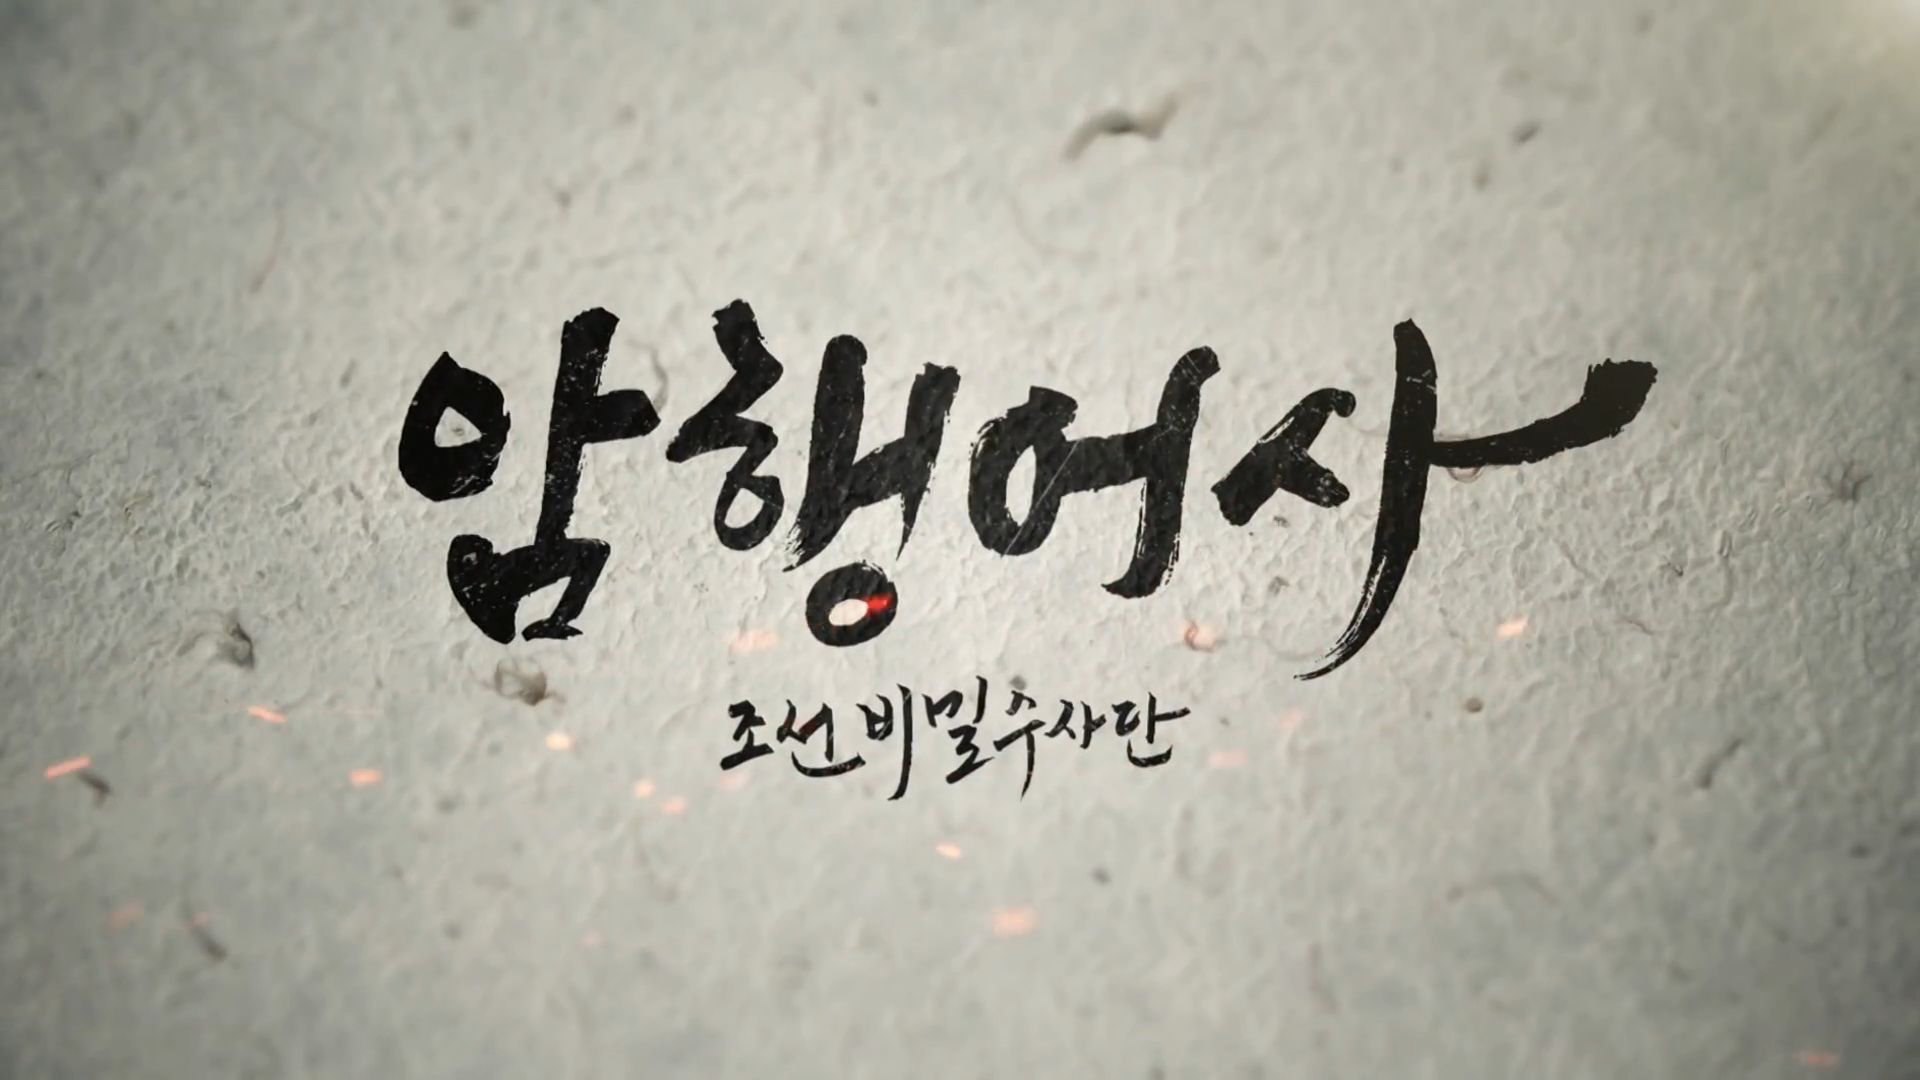 암행어사
조선비밀수사단